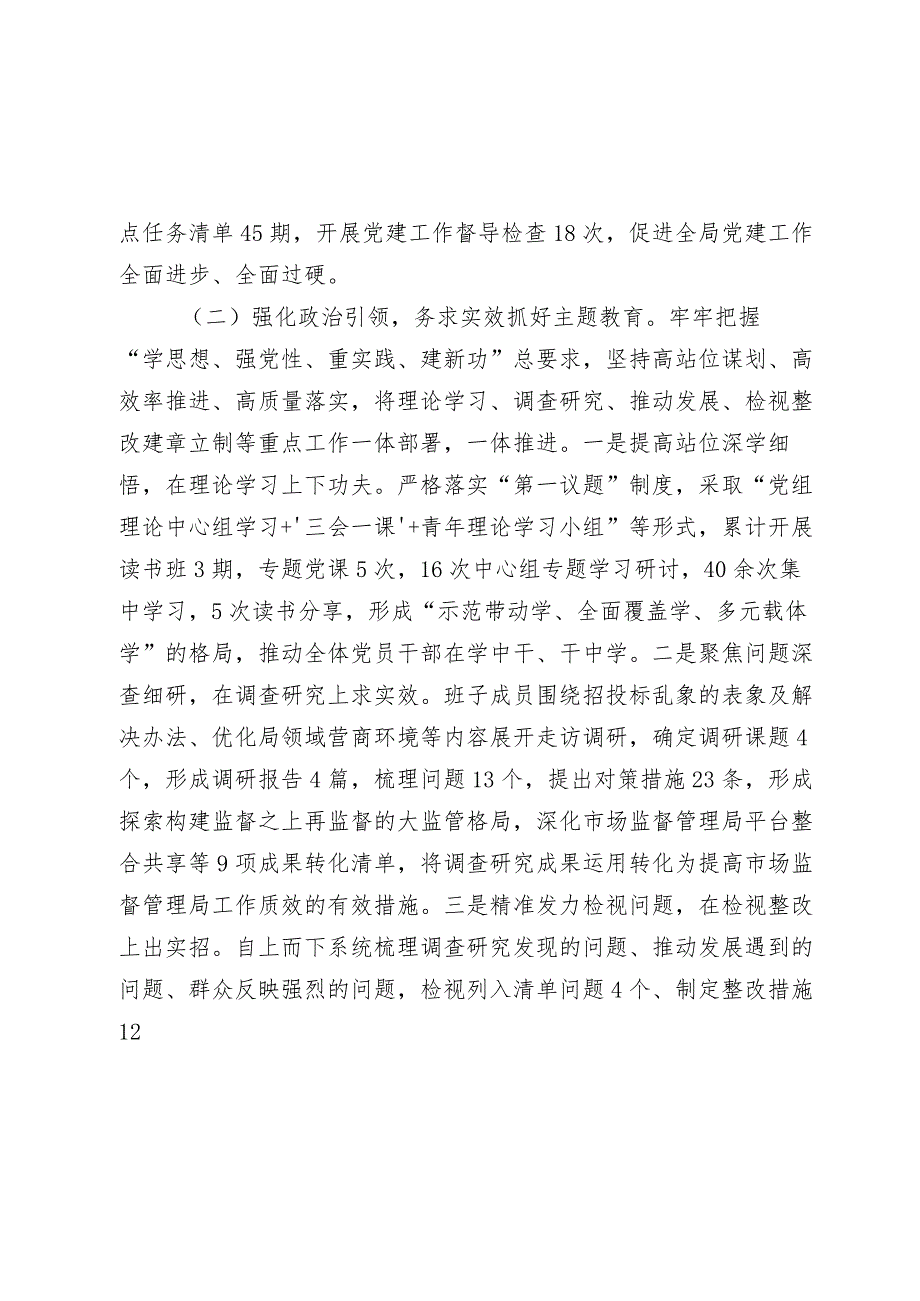 点任务清单 45 期，开展党建工作督导检查 18 次，促进全局党建工作
全面进步、全面过硬。
（二）强化政治引领，务求实效抓好主题教育。牢牢把握
“学思想、强党性、重实践、建新功”总要求，坚持高站位谋划、高
效率推进、高质量落实，将理论学习、调查研究、推动发展、检视整
改建章立制等重点工作一体部署，一体推进。一是提高站位深学细
悟，在理论学习上下功夫。严格落实“第一议题”制度，采取“党组
理论中心组学习+'三会一课'+青年理论学习小组”等形式，累计开展
读书班 3 期，专题党课 5 次，16 次中心组专题学习研讨，40 余次集
中学习，5 次读书分享，形成“示范带动学、全面覆盖学、多元载体
学”的格局，推动全体党员干部在学中干、干中学。二是聚焦问题深
查细研，在调查研究上求实效。班子成员围绕招投标乱象的表象及解
决办法、优化局领域营商环境等内容展开走访调研，确定调研课题 4
个，形成调研报告 4 篇，梳理问题 13 个，提出对策措施 23 条，形成
探索构建监督之上再监督的大监管格局，深化市场监督管理局平台整
合共享等 9 项成果转化清单，将调查研究成果运用转化为提高市场监
督管理局工作质效的有效措施。三是精准发力检视问题，在检视整改
上出实招。自上而下系统梳理调查研究发现的问题、推动发展遇到的
问题、群众反映强烈的问题，检视列入清单问题 4 个、制定整改措施
12